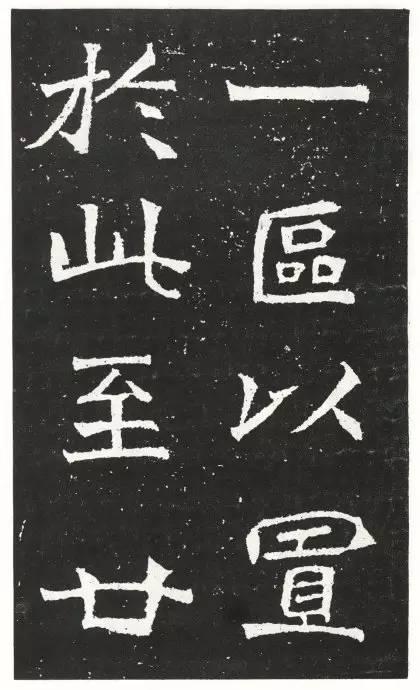 一區以置
於此至廿